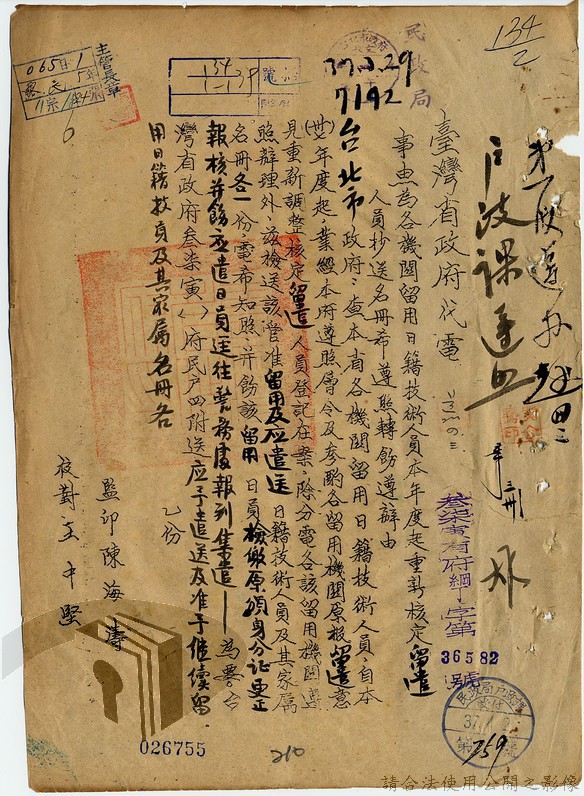 134
2
民政局
37.3.29
7192
臺灣省政府代電
事由為各機關留用日籍技術人員本年度起重新核定留遣
人員抄送名冊希遵照轉飭遵辦由
台北市政府:查本省各機關留用日籍技術人員,自本
(卅七)年度起,業經本府遵照層令及參酌各留用機關原報留遣意
見重新調整核定留遣人員登記在案,除分電各該留用機關遵
照辦理外,茲檢送該管准留用及应遣送日籍技術人員及其家屬
名冊各一份,電希知照,并飭該留用日員檢繳原領身分証更正
報核并飭应遣日員逕往警務處報到集遣——為要。台
灣省政府叁柒寅( )府民戶四附送应予遣送及准予継续留
用日籍技員及其家属名冊各
乙份
監印陳海濤
校對王中堅
叁柒寅 府綱丁字第
36582
號
民政局戶政課
收付
37.
第259號
主管長章
026755
210
請合法使用公開之影像